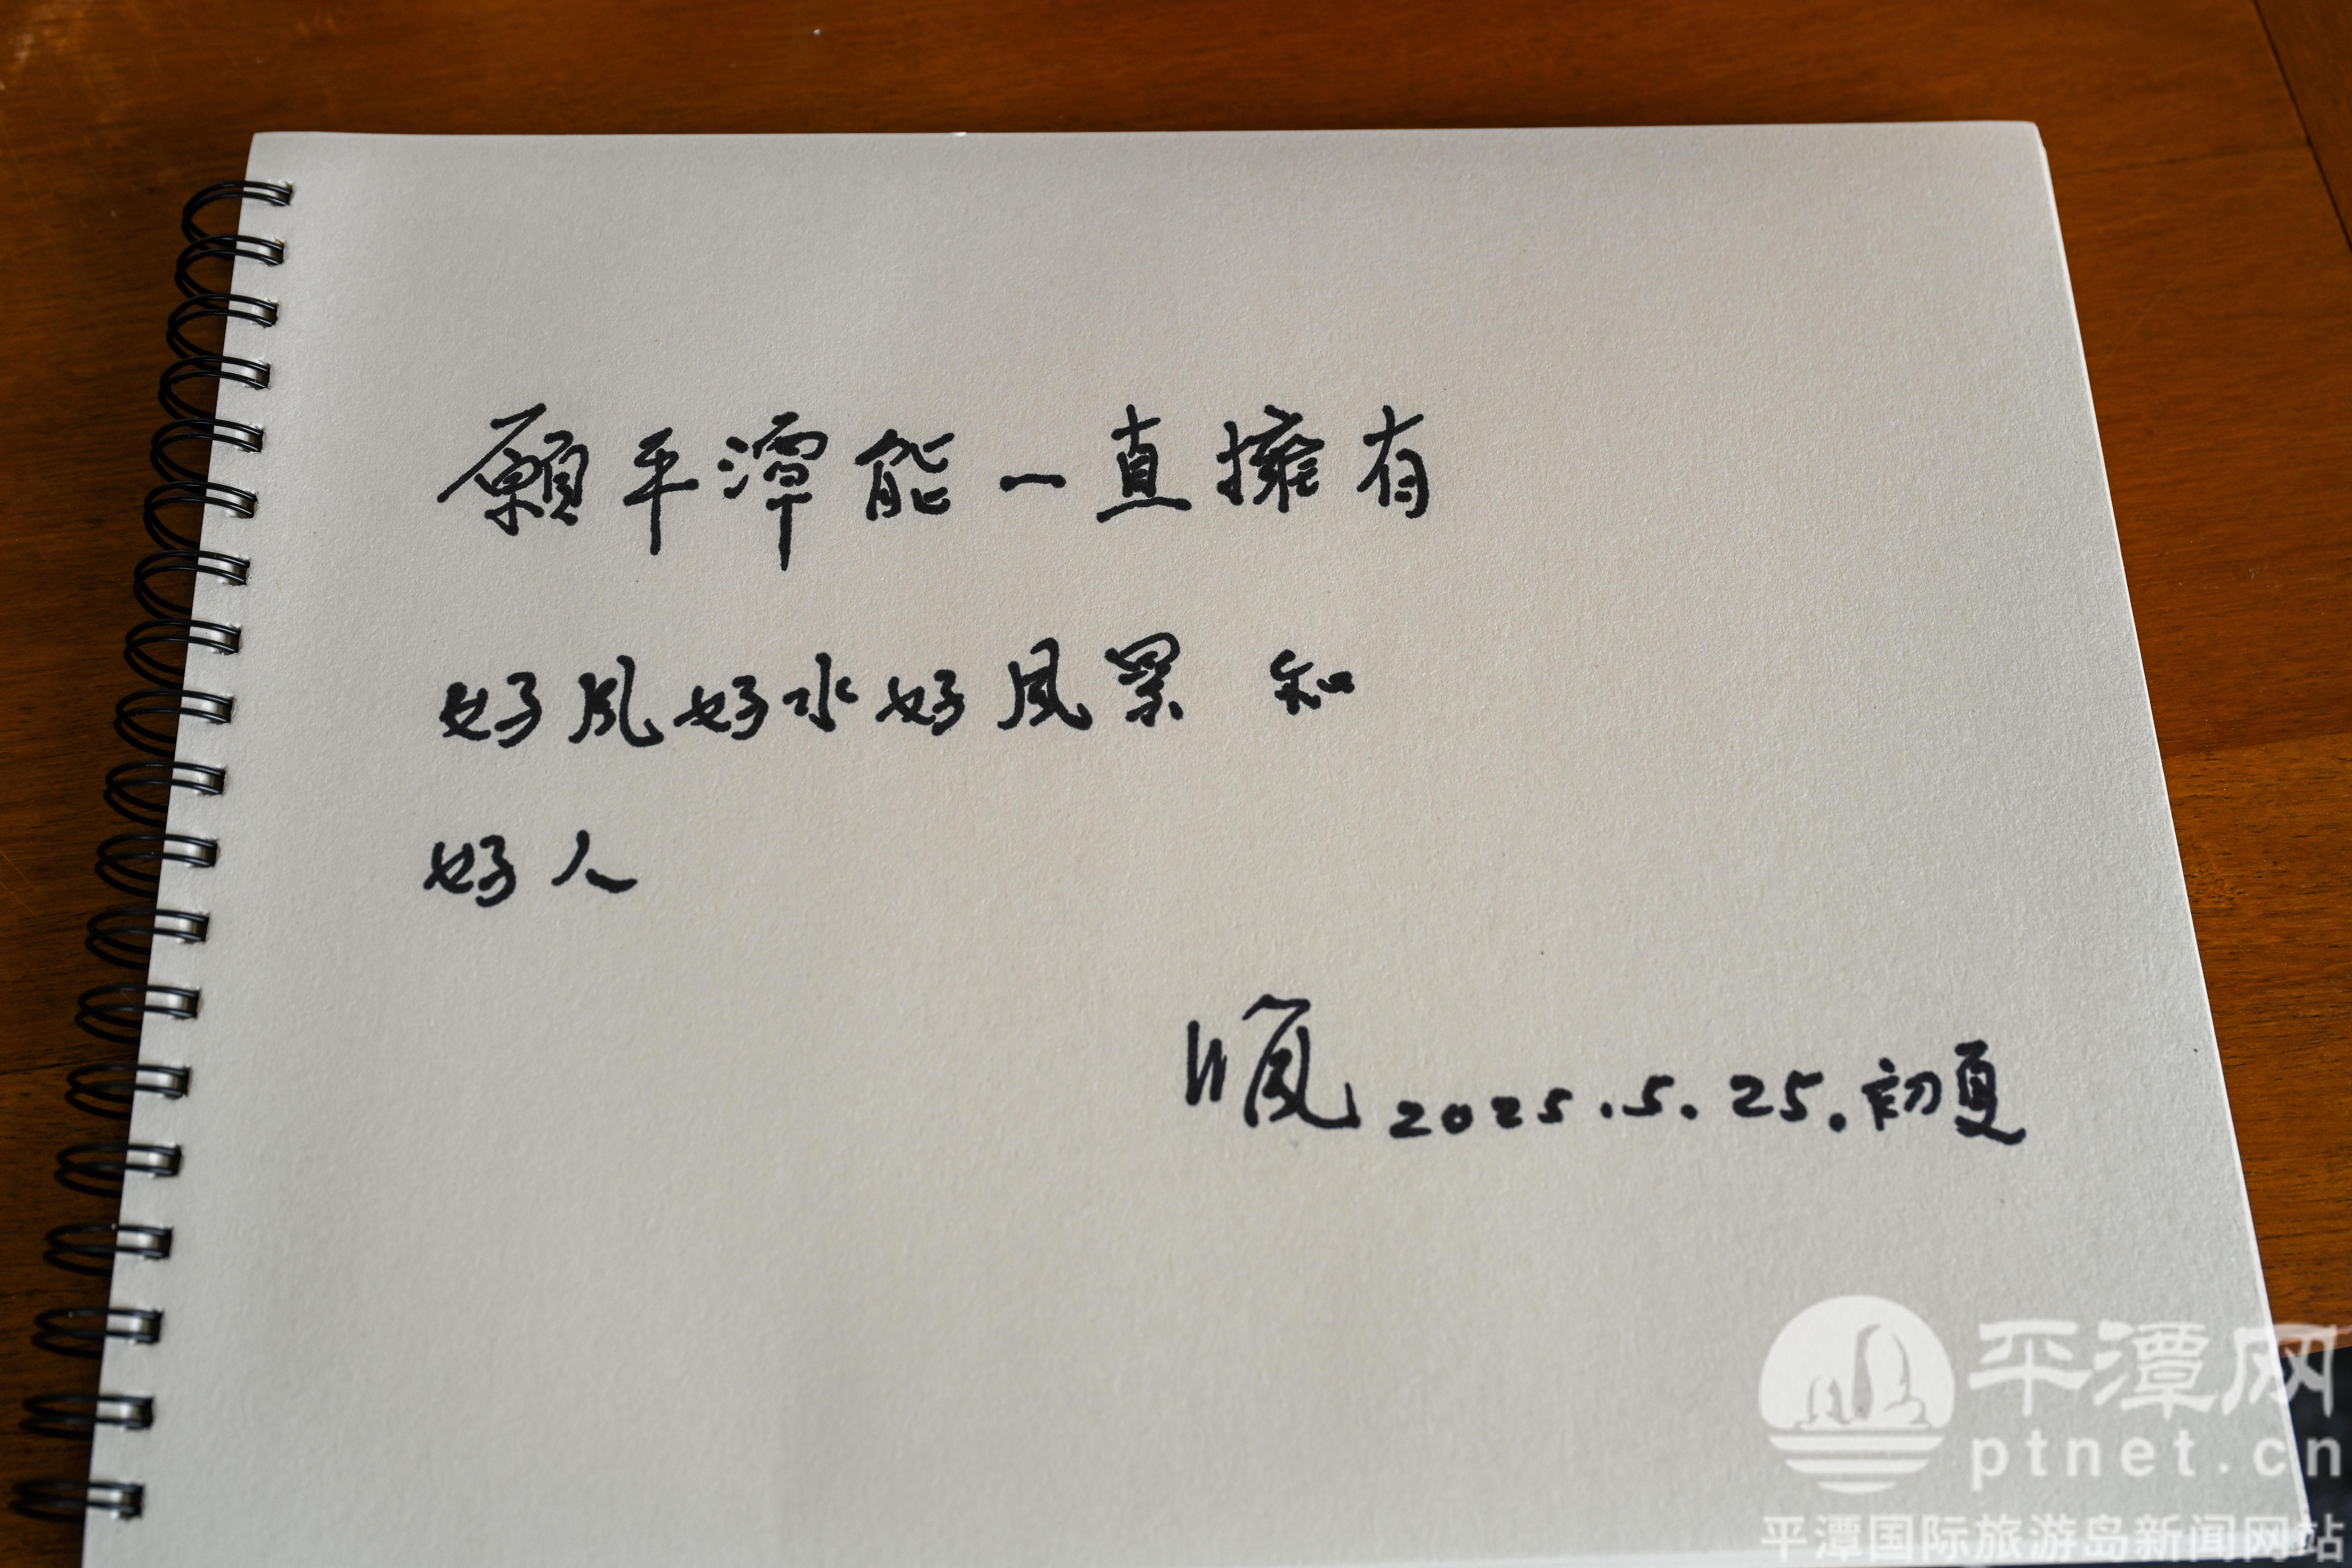 願平潭能一直擁有
好风好水好风景 和
好人
2025.5.25.初夏
平潭网
ptnet.cn
平潭国际旅游岛新闻网站